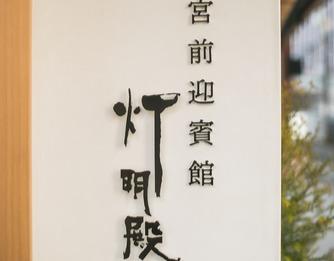 宮前迎賓館
灯明殿